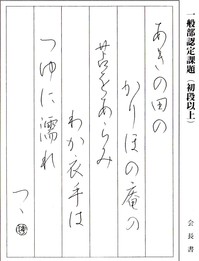 一般部認定課題（初段以上）
あきの田の
かりほの庵の
苫をあらみ
わか衣手は
つゆに濡れ
つゝ
会長書